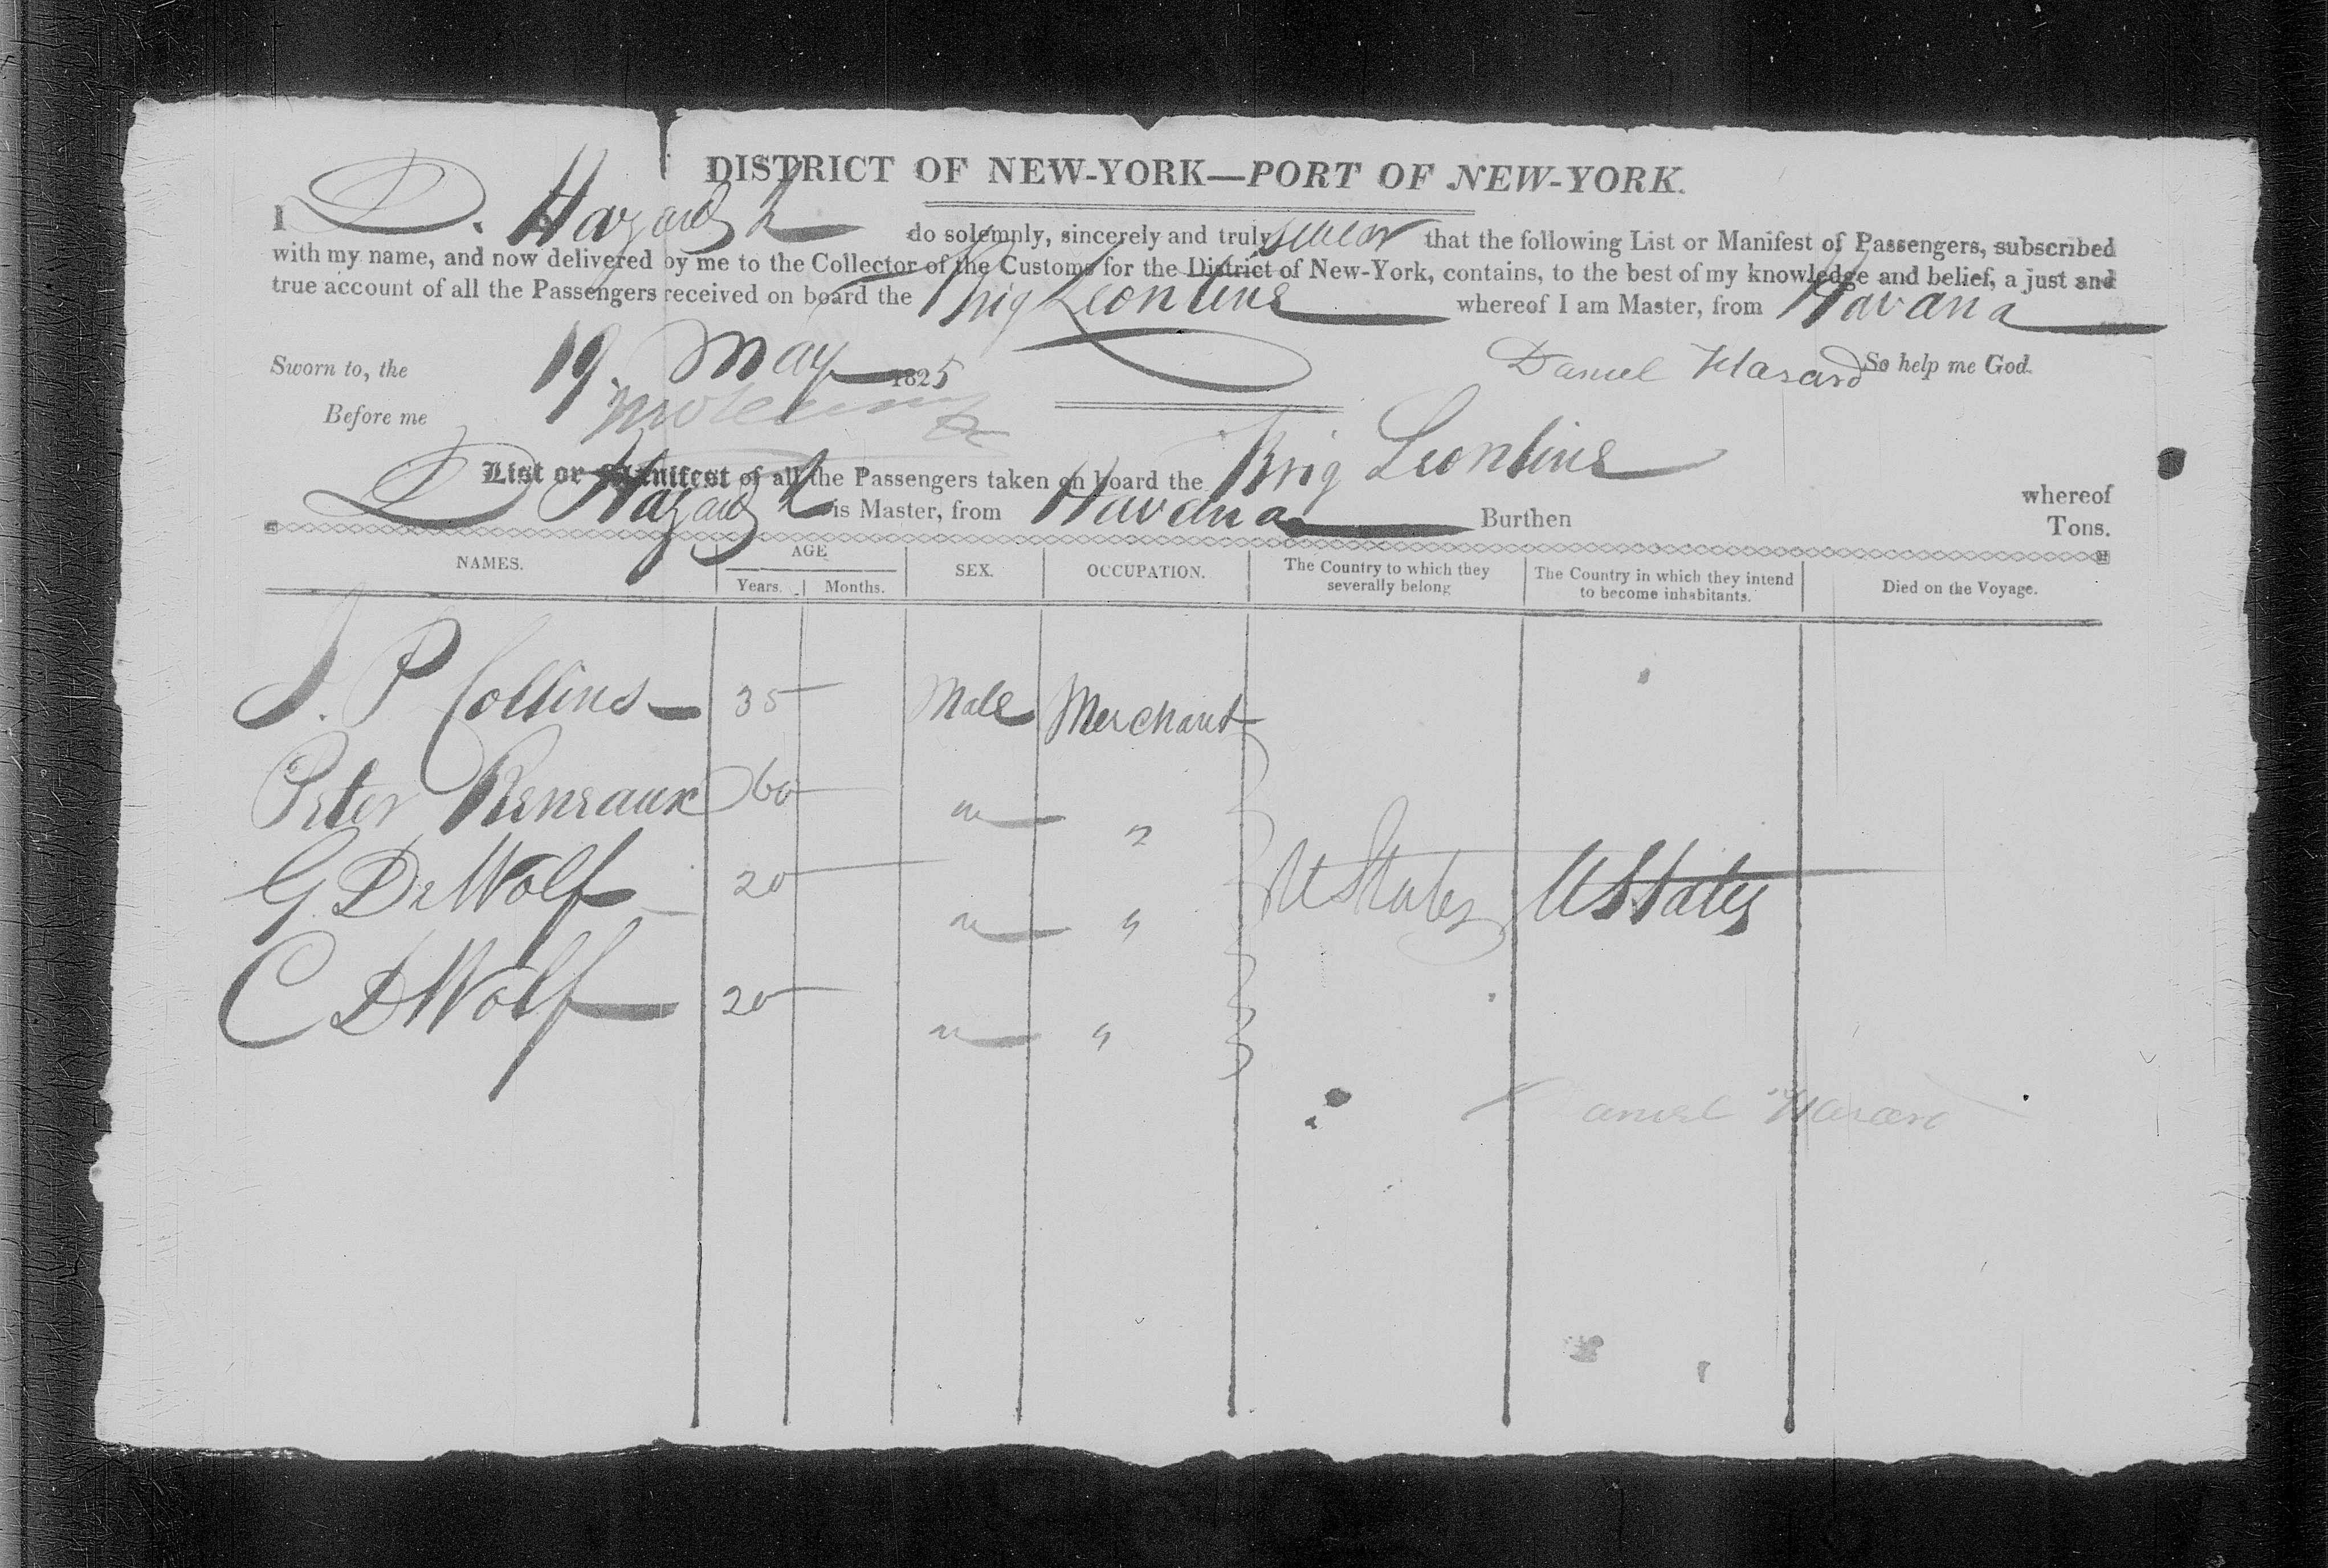 DISTRICT OF NEW-YORK—PORT OF NEW-YORK.
I D. Hazard do solemnly, sincerely and truly swear that the following List or Manifest of Passengers, subscribed
with my name, and now delivered by me to the Collector of the Customs for the District of New-York, contains, to the best of my knowledge and belief, a just and
true account of all the Passengers received on board the Brig Leontine whereof I am Master, from Havana
Sworn to, the 19. May 1825 Daniel Hasard So help me God.
Before me
List or Manifest of all the Passengers taken on board the Brig Leontine whereof
D Hazard is Master, from Havana Burthen Tons.
NAMES. AGE SEX. OCCUPATION. The Country to which they severally belong The Country in which they intend to become inhabitants. Died on the Voyage.
Years. Months.
J. P Collins 35 Male Merchant
Peter Reneaux 60 " "
G. DeWolf 20 " " U States U States
C DWolf 20 " "
Daniel Hasard